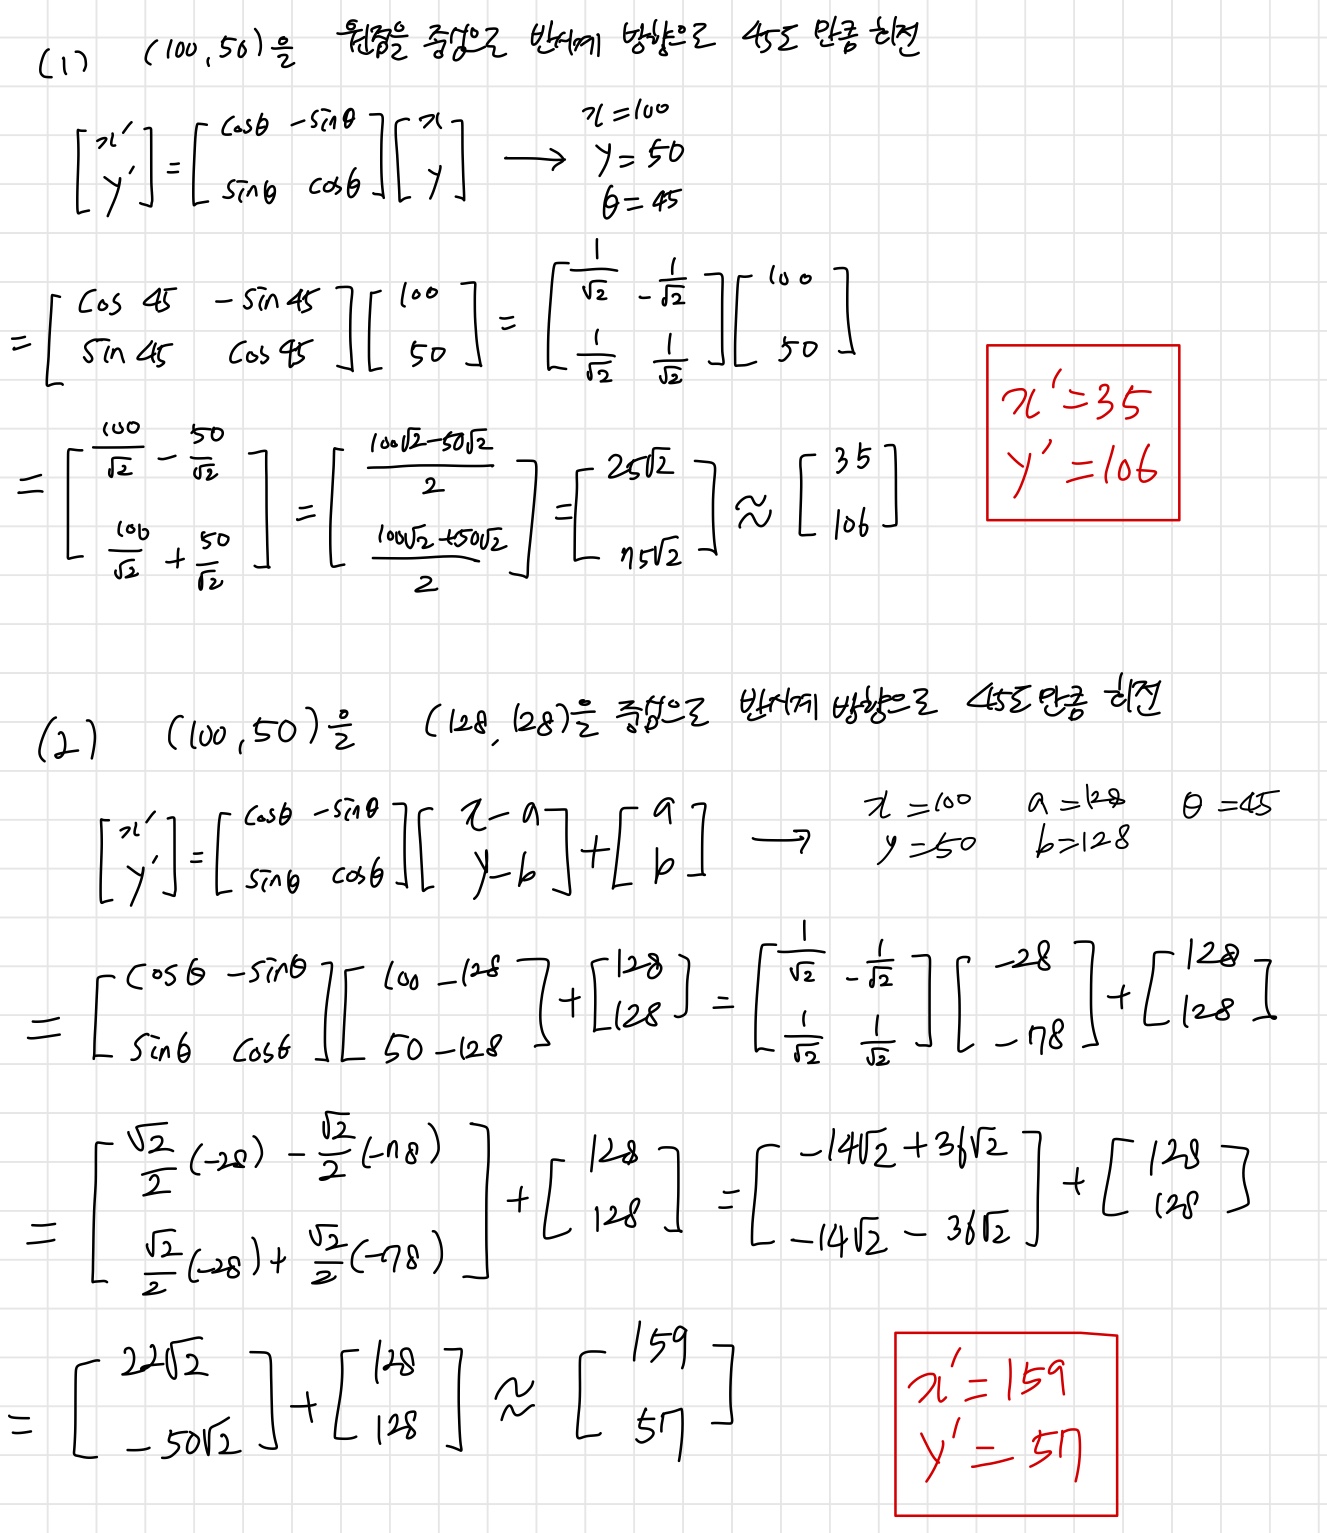 (1) (100,50)을 원점을 중심으로 반시계 방향으로 45도 만큼 회전
[x' y'] = [cosθ -sinθ sinθ cosθ][x y] → x=100 y=50 θ=45
= [cos 45 -sin 45 sin 45 cos 45][100 50] = [1/√2 -1/√2 1/√2 1/√2][100 50]
= [100/√2 - 50/√2 100/√2 + 50/√2] = [(100√2-50√2)/2 (100√2+50√2)/2] = [25√2 75√2] ≈ [35 106]
x'=35
y'=106
(2) (100,50)을 (128,128)을 중심으로 반시계 방향으로 45도 만큼 회전
[x' y'] = [cosθ -sinθ sinθ cosθ][x-a y-b] + [a b] → x=100 a=128 θ=45 y=50 b=128
= [cosθ -sinθ sinθ cosθ][100-128 50-128] + [128 128] = [1/√2 -1/√2 1/√2 1/√2][-28 -78] + [128 128]
= [√2/2(-28) - √2/2(-78) √2/2(-28) + √2/2(-78)] + [128 128] = [-14√2+36√2 -14√2-36√2] + [128 128]
= [22√2 -50√2] + [128 128] ≈ [159 57]
x'=159
y'=57